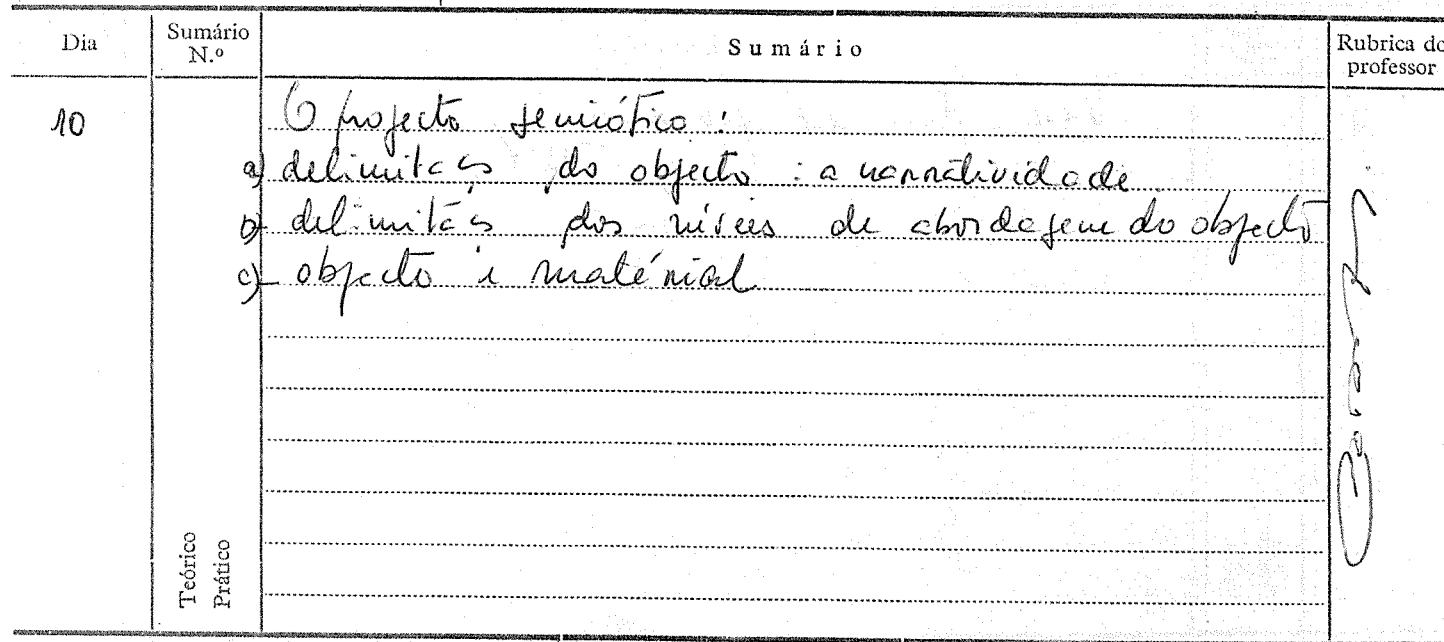 Dia Sumário N.º Sumário Rubrica do professor
10 O projecto semiótico :
a) delimitação do objecto : a narratividade
b) delimitação dos níveis de abordagem do objecto
c) objecto e material
Teórico
Prático